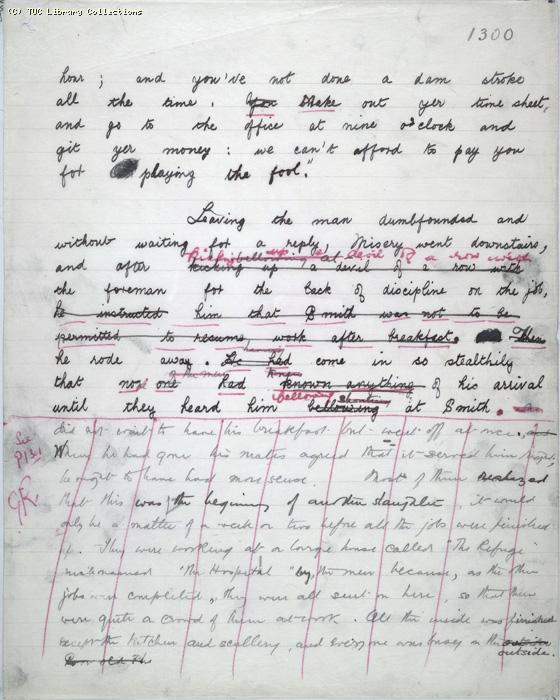 (C) TUC Library Collections
1300
hour; and you've not done a dam stroke
all the time. You Make out yer time sheet,
and go to the office at nine o'clock and
git yer money: we can't afford to pay you
for playing the fool."
Leaving the man dumbfounded and
without waiting for a reply, Misery went downstairs,
kicking up a devil of a row with
and after kicking up a devil of a row with
the foreman for the lack of discipline on the job,
he instructed him that Smith was not to be
permitted to resume work after breakfast. Then
he rode away. He had come in so stealthily
of the men knew
that no one had known anything of his arrival
bellowing shouting
until they heard him bellowing at Smith.
did not wait to have his breakfast but went off at once,
When he had gone his mates agreed that it served him right:
he ought to have had more sense. Most of them
that this was the beginning of another slaughter, it would
only be a matter of a week or two before all the jobs were finished
up. They were working at a large house called "The Refuge"
nicknamed "the Hospital" by the men because, as the other
jobs were completed, they were all sent in here, so that there
were quite a crowd of them at work. All the inside was finished
except the kitchen and scullery, and everyone was busy on the
outside.
See
P131
G.R.